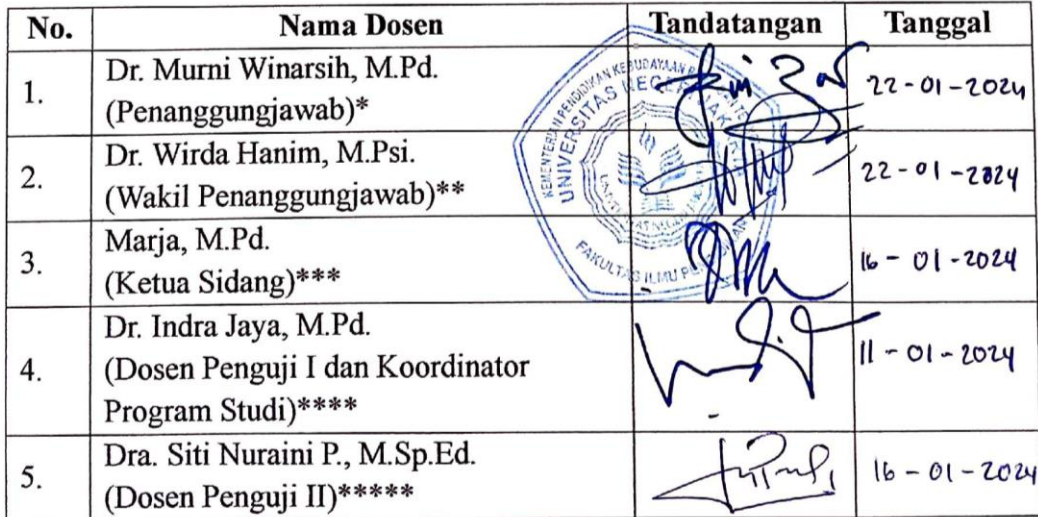 No. Nama Dosen Tandatangan Tanggal
1. Dr. Murni Winarsih, M.Pd.
(Penanggungjawab)* 22-01-2024
2. Dr. Wirda Hanim, M.Psi.
(Wakil Penanggungjawab)** 22-01-2024
3. Marja, M.Pd.
(Ketua Sidang)*** 16-01-2024
4. Dr. Indra Jaya, M.Pd.
(Dosen Penguji I dan Koordinator
Program Studi)**** 11-01-2024
5. Dra. Siti Nuraini P., M.Sp.Ed.
(Dosen Penguji II)***** 16-01-2024
UNIVERSITAS NEGERI JAKARTA
FAKULTAS ILMU